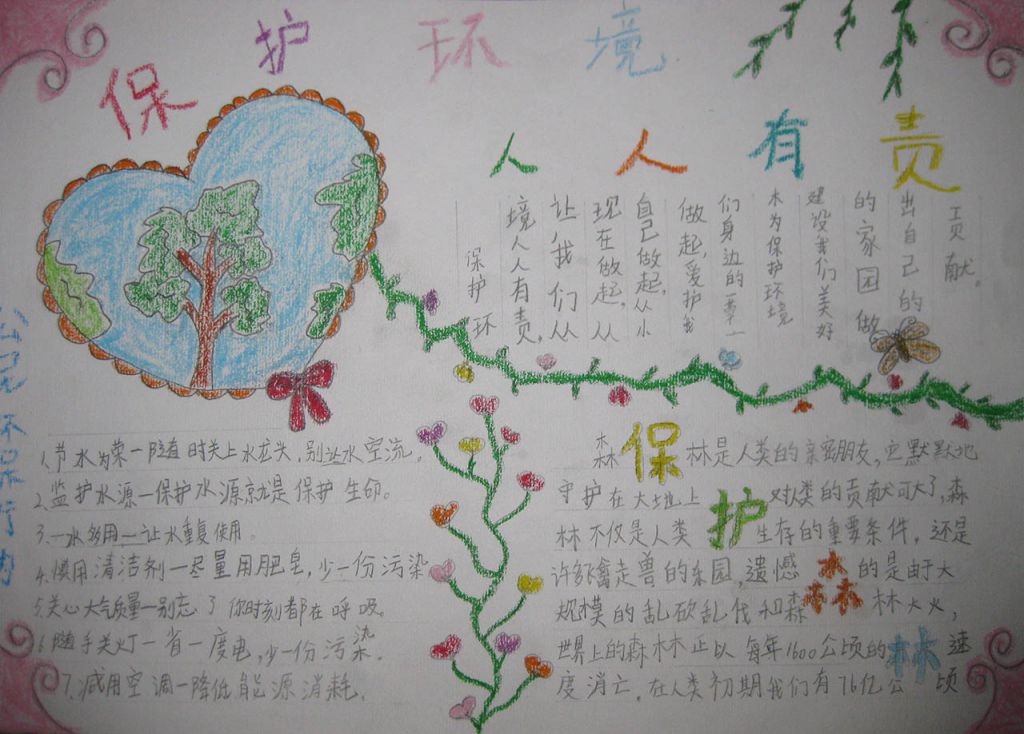 保护环境
人人有责
保护环
境人人有责,
让我们从
现在做起,从
自己做起,从小
做起,爱护我
们身边的一草一
木为保护环境
建设我们美好
的家园做
出自己的
贡献。
公民环保行为
1.节水为荣一随时关上水龙头,别让水空流。
2.监护水源一保护水源就是保护生命。
3.一水多用一让水重复使用。
4.慎用清洁剂一尽量用肥皂,少一份污染
5.关心大气质量一别忘了你时刻都在呼吸。
6.随手关灯一省一度电,少一份污染。
7.减用空调一降低能源消耗。
保护森林
森林是人类的亲密朋友,它默默地
守护在大地上对人类的贡献可大了,森
林不仅是人类生存的重要条件,还是
许多禽走兽的乐园,遗憾的是由于大
规模的乱砍乱伐和森林大火,
世界上的森林正以每年1600公顷的速
度消亡,在人类初期我们有76亿公顷